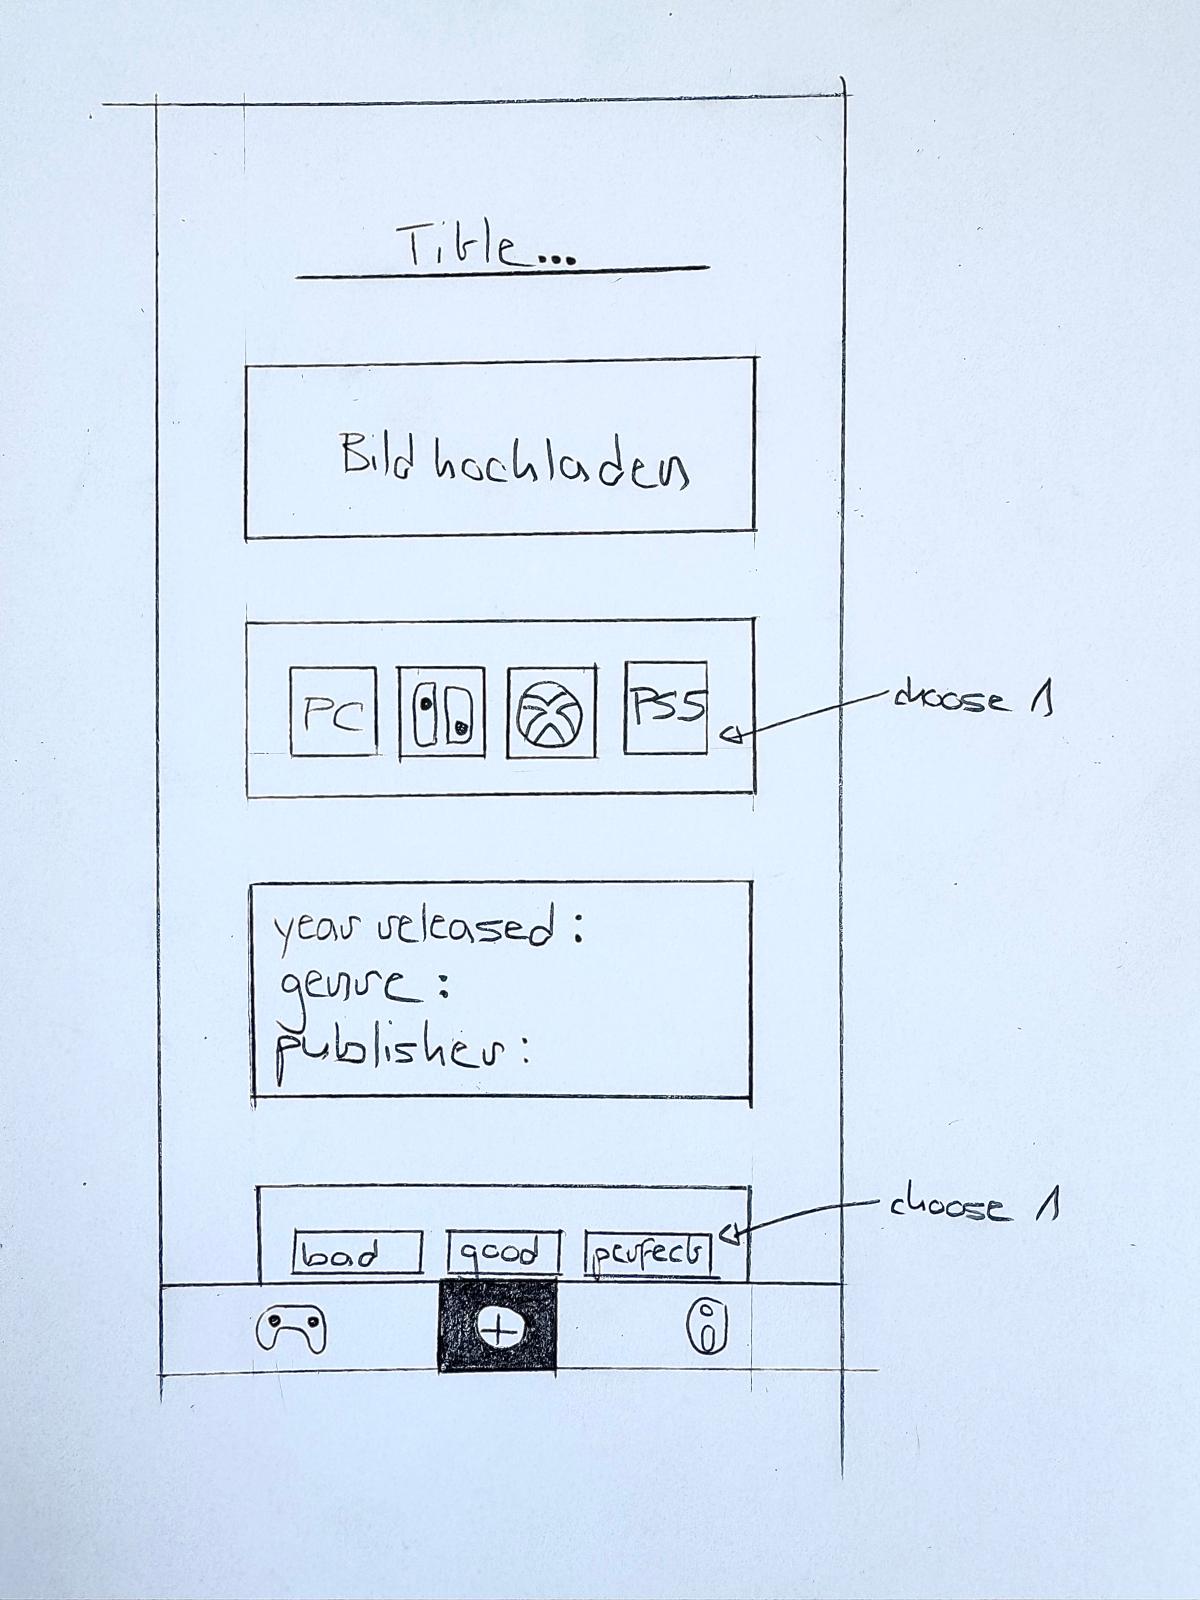 Title...
Bild hochladen
PC PS5
choose 1
year released :
genre :
publisher :
choose 1
bad good perfect